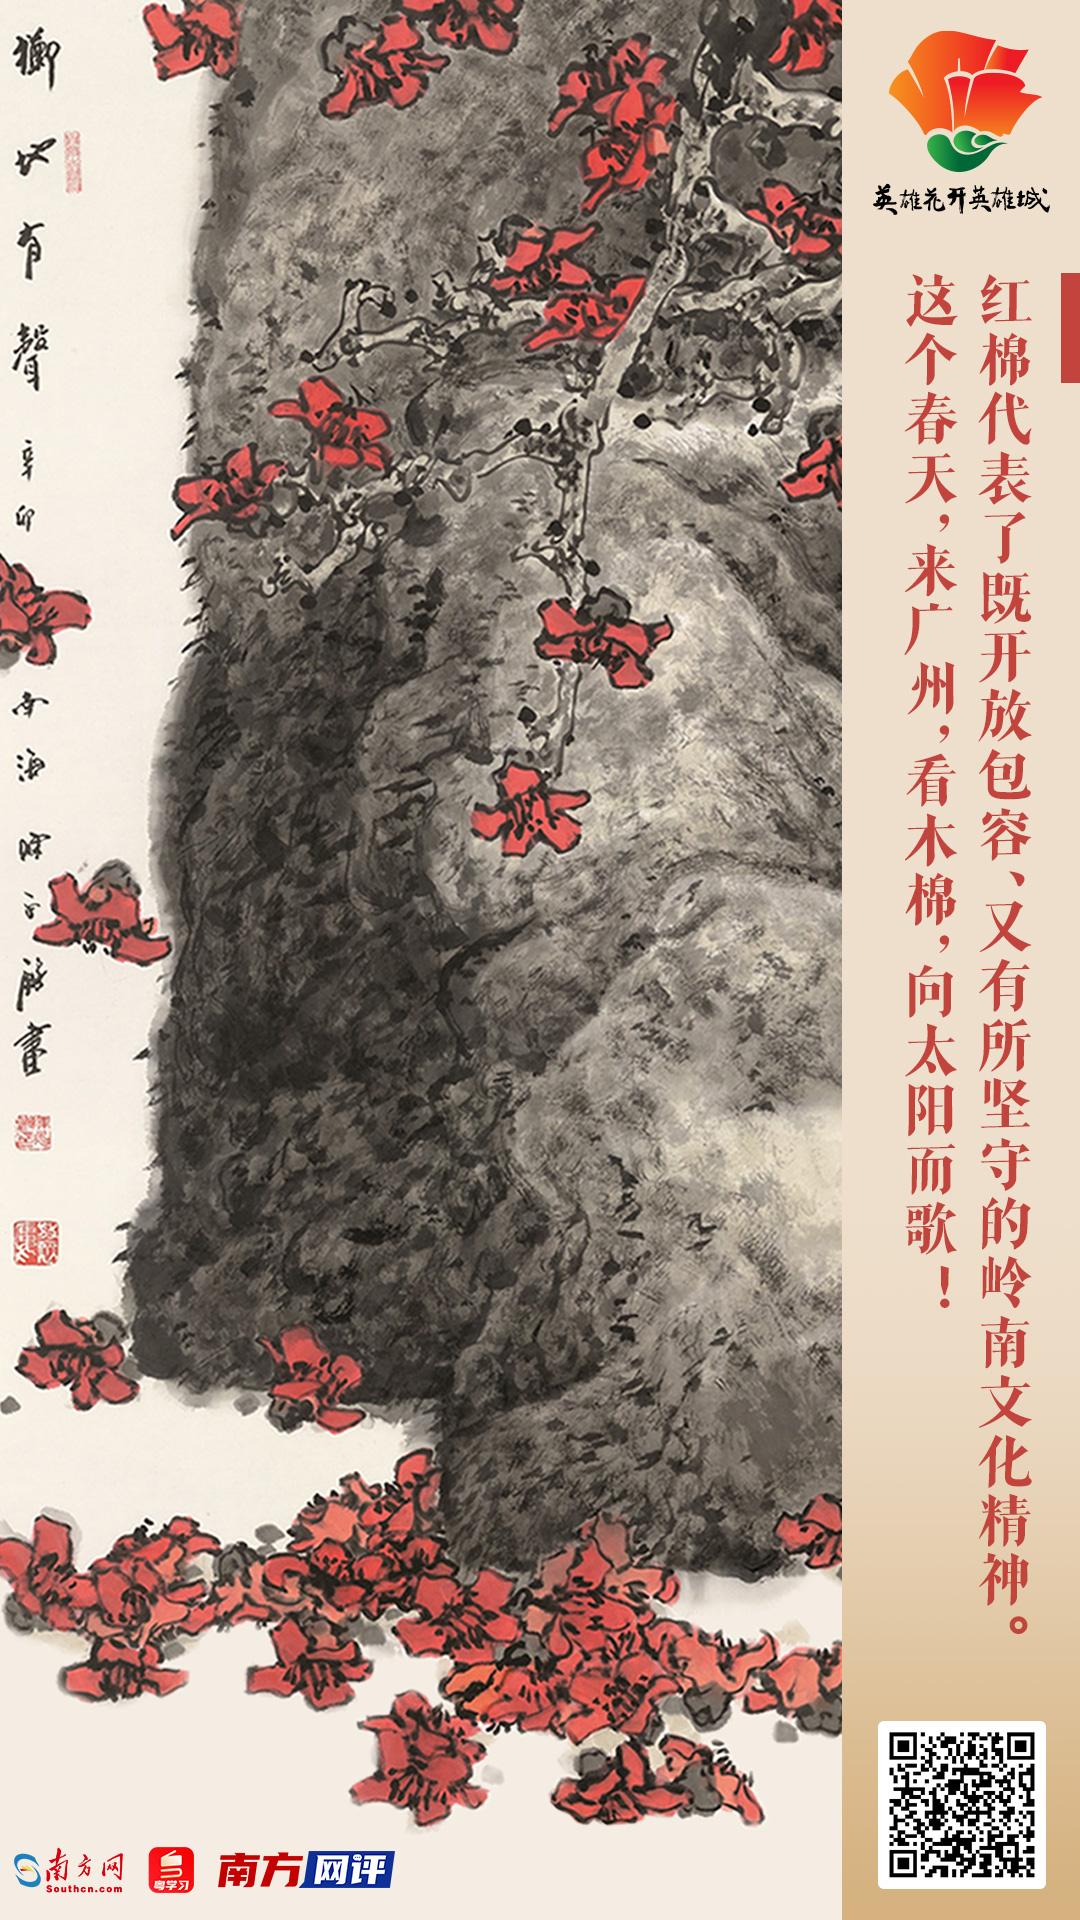 英雄花开英雄城
红棉代表了既开放包容、又有所坚守的岭南文化精神。
这个春天，来广州，看木棉，向太阳而歌！
掷地有聲 辛卯
南方网
Southcn.com
粤学习
南方网评